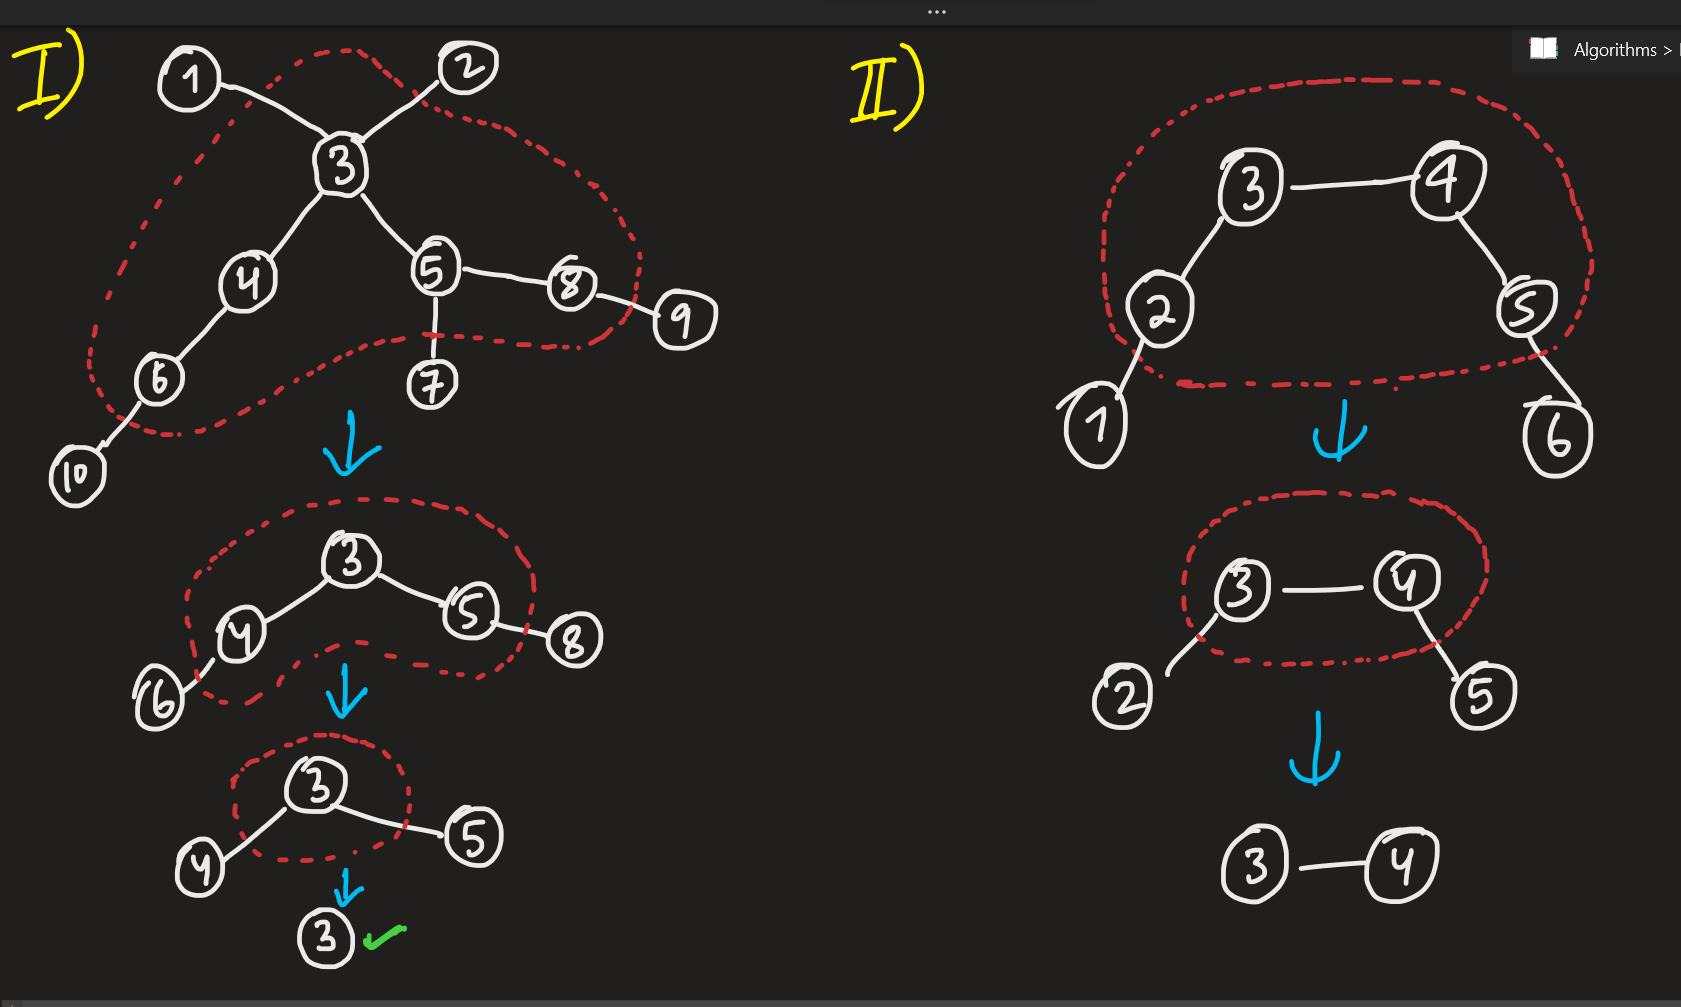 ...
Algorithms >
I)
II)
1
2
3
4
5
8
9
6
7
10
3
4
5
8
6
3
4
5
3
3
4
2
5
1
6
3
4
2
5
3
4